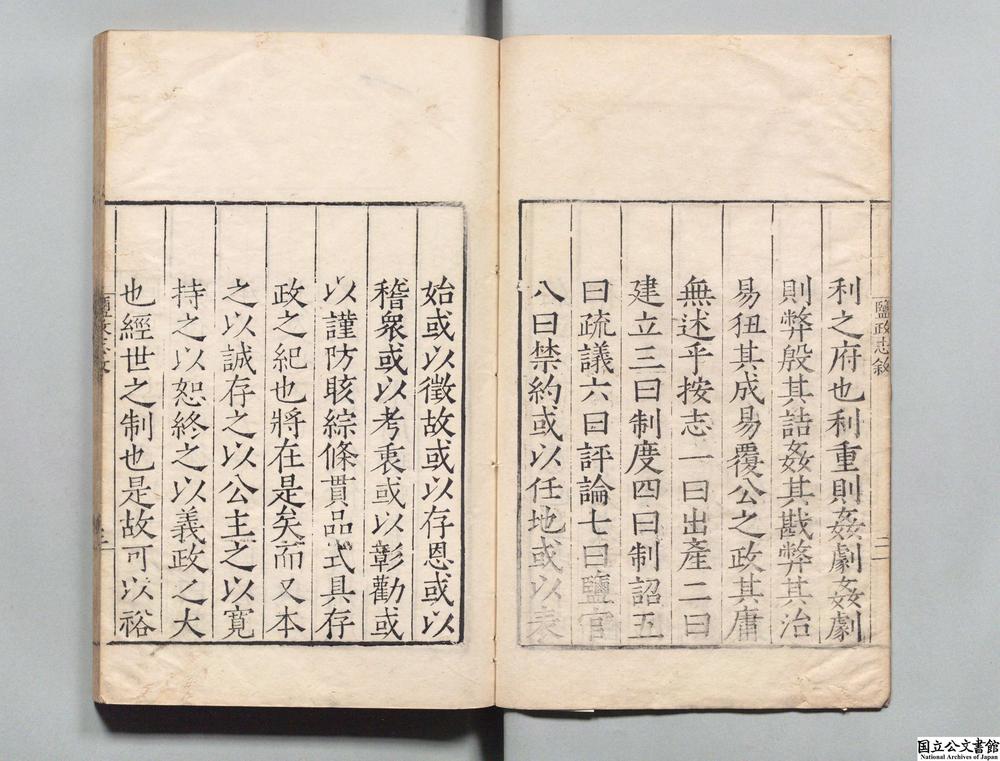 鹽政志敘
二
利之府也利重則姦劇姦劇
則弊殷其詰姦其戡弊其治
易狃其成易覆公之政其庸
無述乎按志一曰出產二曰
建立三曰制度四曰制詔五
曰疏議六曰評論七曰鹽官
八曰禁約或以任地或以表
始或以徵故或以存恩或以
稽衆或以考衷或以彰勸或
以謹防晐綜條貫品式具存
政之紀也將在是矣而又本
之以誠存之以公主之以寬
持之以恕終之以義政之大
也經世之制也是故可以裕
国立公文書館
National Archives of Japan